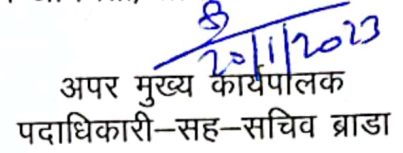 20/1/2023
अपर मुख्य कार्यपालक
पदाधिकारी–सह–सचिव ब्राडा